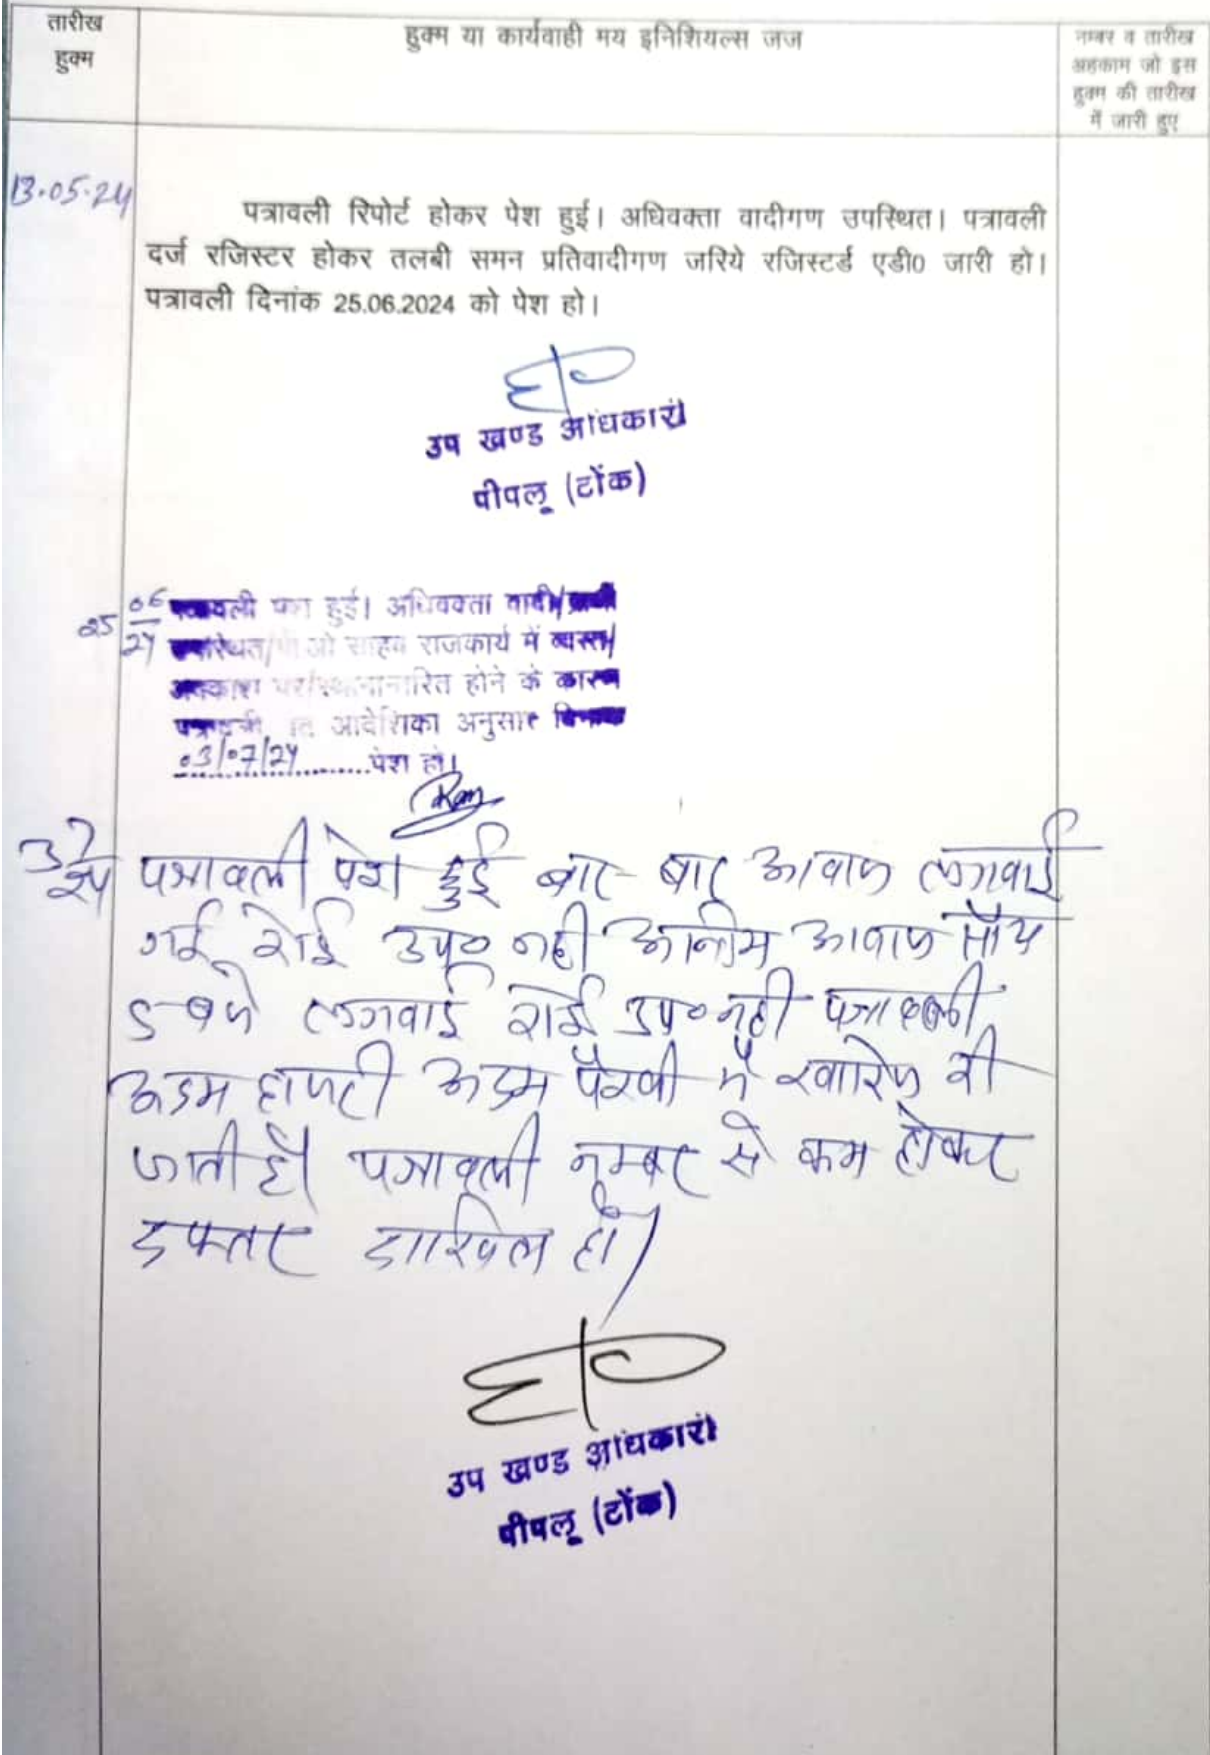 तारीख
हुक्म
हुक्म या कार्यवाही मय इनिशियल्स जज
नम्बर व तारीख
अहकाम जो इस
हुक्म की तारीख
में जारी हुए
13.05.24
पत्रावली रिपोर्ट होकर पेश हुई। अधिवक्ता वादीगण उपस्थित। पत्रावली
दर्ज रजिस्टर होकर तलबी समन प्रतिवादीगण जरिये रजिस्टर्ड एडी0 जारी हो।
पत्रावली दिनांक 25.06.2024 को पेश हो।
उप खण्ड अधिकारी
पीपलू (टोंक)
25 06/24
पत्रावली पेश हुई। अधिवक्ता वादी/प्रार्थी
उपस्थित/पी ओ साहब राजकार्य में व्यस्त/
अवकाश पर/स्थानान्तरित होने के कारण
पत्रावली आदेशिका अनुसार दिनांक
03/07/24 पेश हो।
3 7/24
पत्रावली पेश हुई बार बार आवाज लगवाई
गई कोई उप० नही अन्तिम आवाज सॉय
5 बजे लगवाई कोई उप० नही पत्रावली
अदम हाजरी अदम पैरवी में खारिज की
जाती है। पत्रावली नम्बर से कम होकर
दफ्तर दाखिल हो।
उप खण्ड अधिकारी
पीपलू (टोंक)